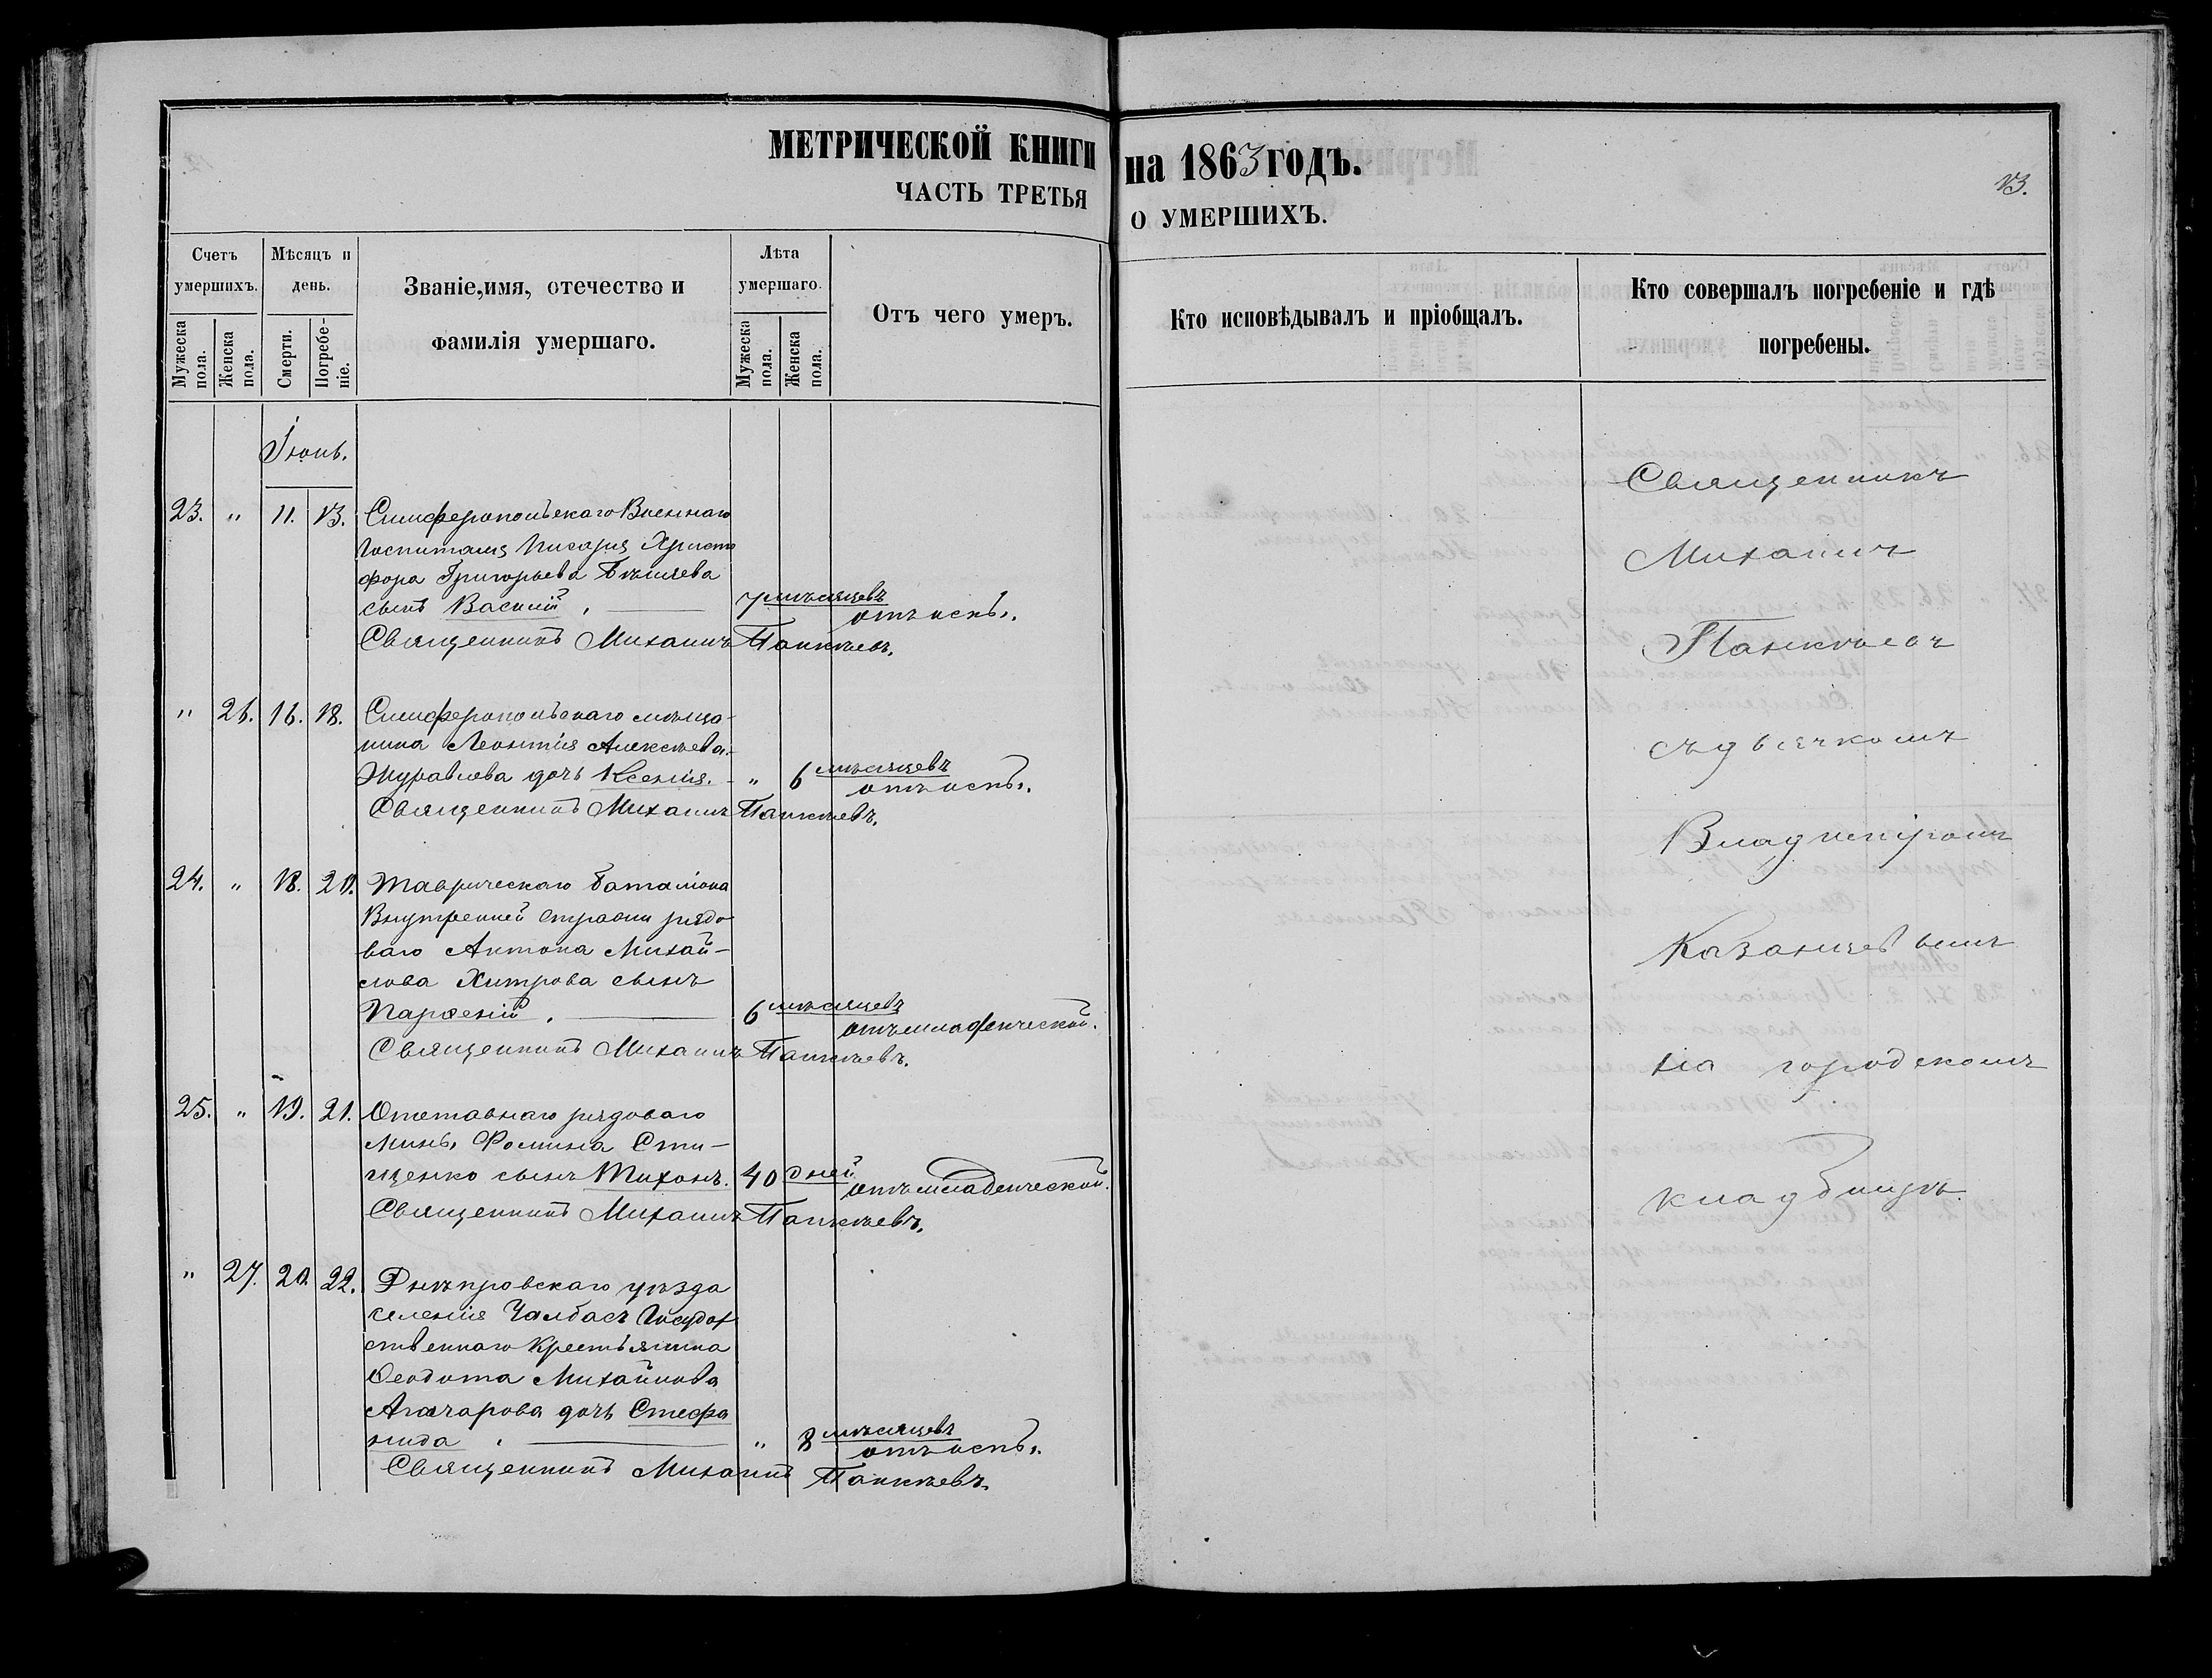 МЕТРИЧЕСКОЙ КНИГИ на 1863 ГОДЪ.
13.
ЧАСТЬ ТРЕТЬЯ О УМЕРШИХЪ.
Счетъ умершихъ.
Мужеска пола.
Женска пола.
Мѣсяцъ и день.
Смерти.
Погребеніе.
Званіе, имя, отечество и фамилія умершаго.
Лѣта умершаго.
Мужеска пола.
Женска пола.
Отъ чего умеръ.
Кто исповѣдывалъ и пріобщалъ.
Кто совершалъ погребеніе и гдѣ погребены.
Іюнь.
23. " 11. 13. Симферопольскаго Военнаго
Госпиталя Писаря Христо
фора Григорьева
сынъ Василій. 7 мѣсяцевъ отъ оспы.
Священникъ Михаилъ Панкѣевъ.
" 26. 16. 18. Симферопольскаго мѣща-
нина Леонтія Алексѣева
Журавлева дочь Ксенія. - " 6 мѣсяцевъ отъ оспы.
Священникъ Михаилъ Панкѣевъ.
24. " 18. 20. Таврическаго баталіона
Внутренней стражи рядо
ваго Антона Михай-
лова Хитрова сынъ
Парѳеній. 6 мѣсяцевъ отъ младенческой.
Священникъ Михаилъ Панкѣевъ.
25. " 19. 21. Отставнаго рядоваго
Мины Фомина Сти-
щенко сынъ Тихонъ. 40 дней отъ младенческой.
Священникъ Михаилъ Панкѣевъ.
" 27. 20. 22. Днѣпровскаго уѣзда
селенія Чалбасъ Государ
ственнаго Крестьянина
Ѳеодота Михайлова
Агачарова дочь Стефа
нида. " 8 мѣсяцевъ отъ оспы.
Священникъ Михаилъ Панкѣевъ.
Священникъ
Михаилъ
Панкѣевъ
съ дьячкомъ
Владиміромъ
Казанцевымъ
на городскомъ
кладбищѣ.